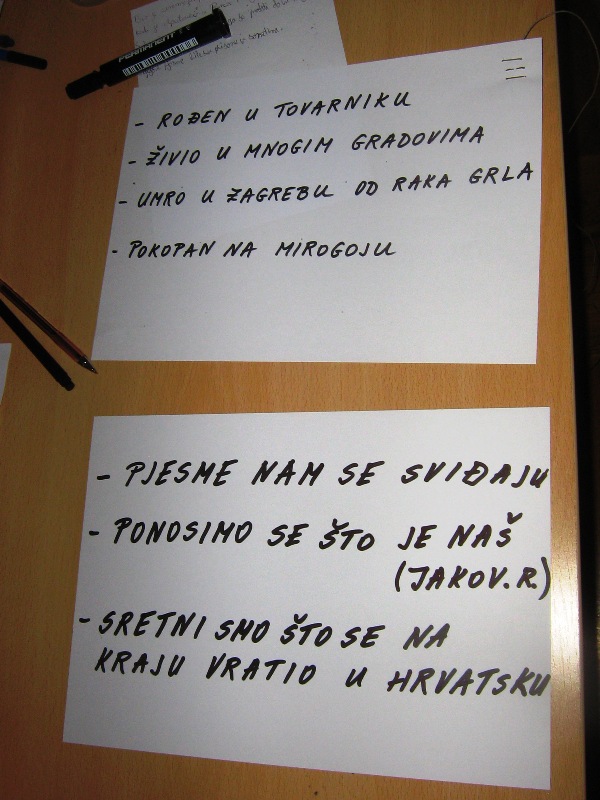 PERMANENT
- ROĐEN U TOVARNIKU
- ŽIVIO U MNOGIM GRADOVIMA
- UMRO U ZAGREBU OD RAKA GRLA
- POKOPAN NA MIROGOJU
- PJESME NAM SE SVIĐAJU
- PONOSIMO SE ŠTO JE NAŠ
(JAKOV.R.)
- SRETNI SMO ŠTO SE NA
KRAJU VRATIO U HRVATSKU